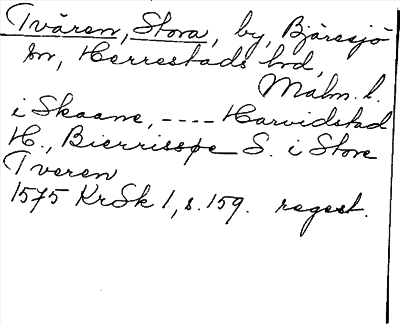 Tväron, Stora, by, Bjäresjö
sn, Herrestads hrd,
Malm. l.
i Skaane, ---- Harvidstad
H., Bierrissøe S. i Store
Tveren
1575 KrSk 1, s. 159. regest.